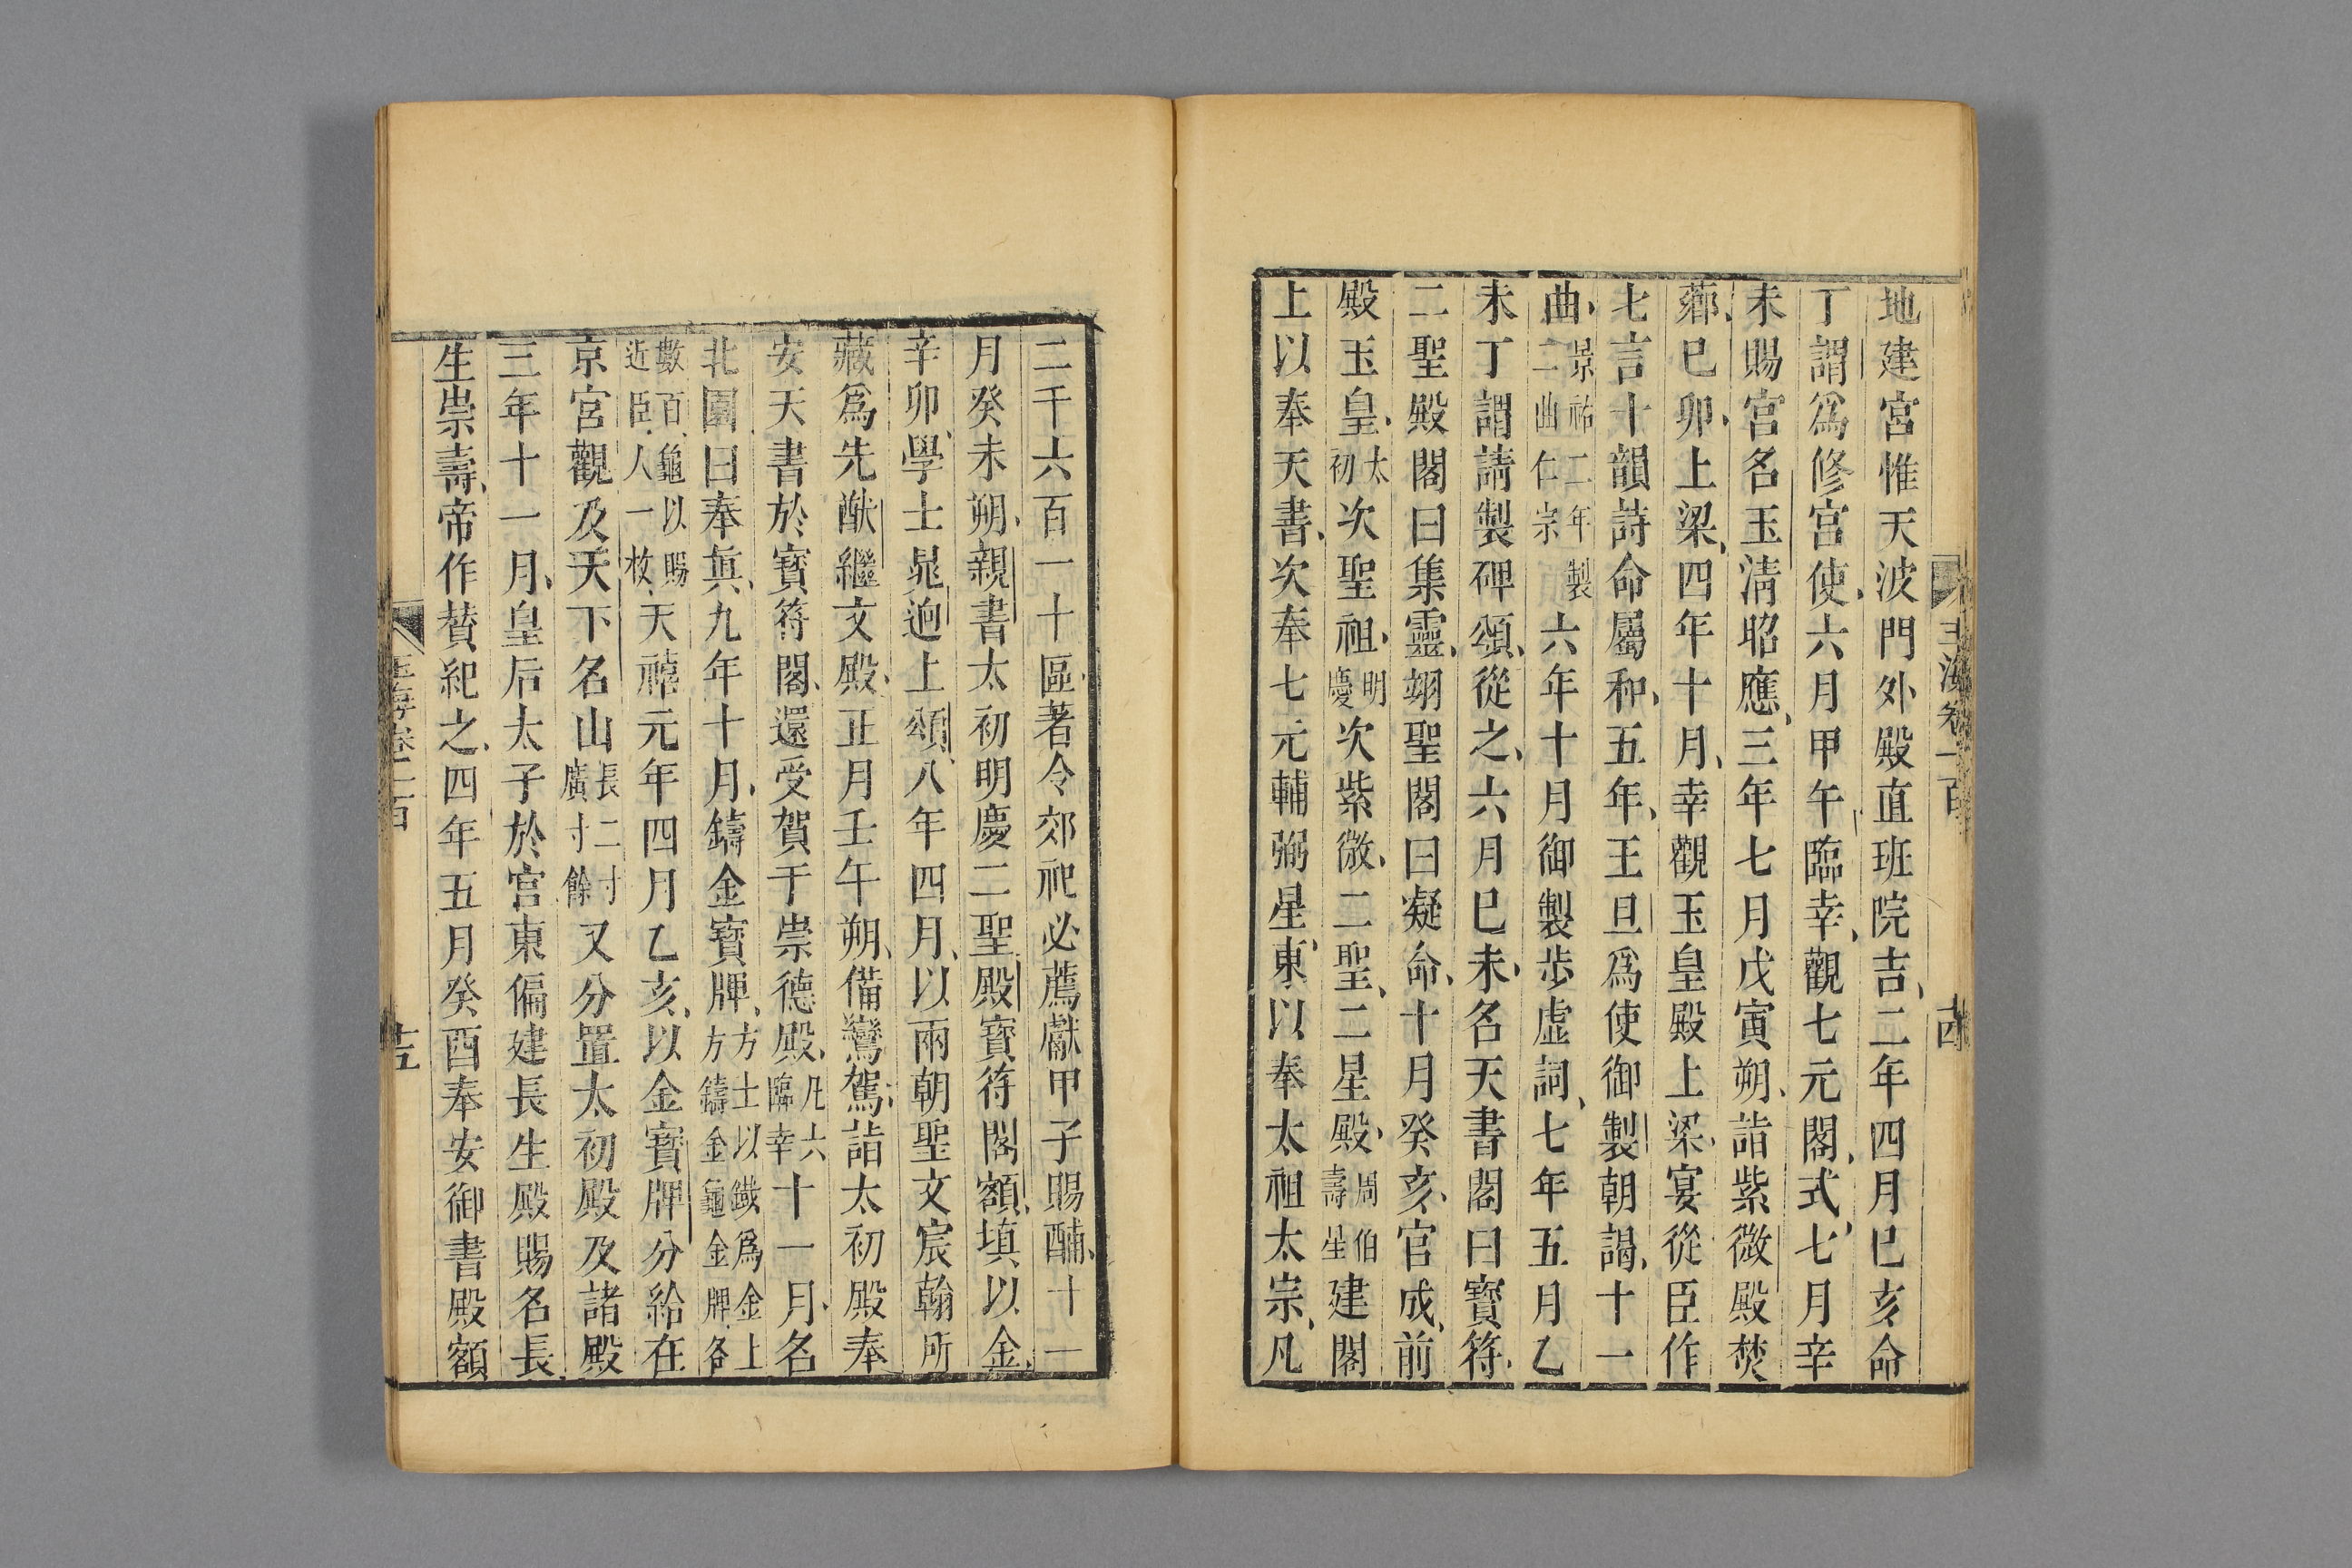 地建宮惟天波門外殿直班院吉二年四月巳亥命
丁謂爲修宮使六月甲午臨幸觀七元閣式七月辛
未賜宮名玉淸昭應三年七月戊寅朔詣紫微殿焚
薌巳卯上梁四年十月幸觀玉皇殿上梁宴從臣作
七言十韻詩命屬和五年王旦爲使御製朝謁十一
曲景祐二年製二曲仁宗六年十月御製步虛詞七年五月乙
未丁謂請製碑頌從之六月巳未名天書閣曰寶符
二聖殿閣曰集靈翊聖閣曰凝命十月癸亥官成前
殿玉皇太初次聖祖明慶次紫微二聖二星殿周伯壽星建閣
上以奉天書次奉七元輔弼星東以奉太祖太宗凡
玉海卷一百
十四
二千六百一十區著令郊祀必薦獻甲子賜酺十一
月癸未朔親書太初明慶二聖殿寶符閣額填以金
辛卯學士晁逈上頌八年四月以兩朝聖文宸翰所
藏爲先猷繼文殿正月壬午朔備鸞駕詣太初殿奉
安天書於寶符閣還受賀于崇德殿凡六臨幸十一月名
北園曰奉眞九年十月鑄金寶牌方士以鐵爲金上方鑄金龜金牌各
數百龜以賜近臣人一枚天禧元年四月乙亥以金寶牌分給在
京宮觀及天下名山長二寸廣寸餘又分置太初殿及諸殿
三年十一月皇后太子於宮東偏建長生殿賜名長
生崇壽帝作贊紀之四年五月癸酉奉安御書殿額
玉海卷一百
十五